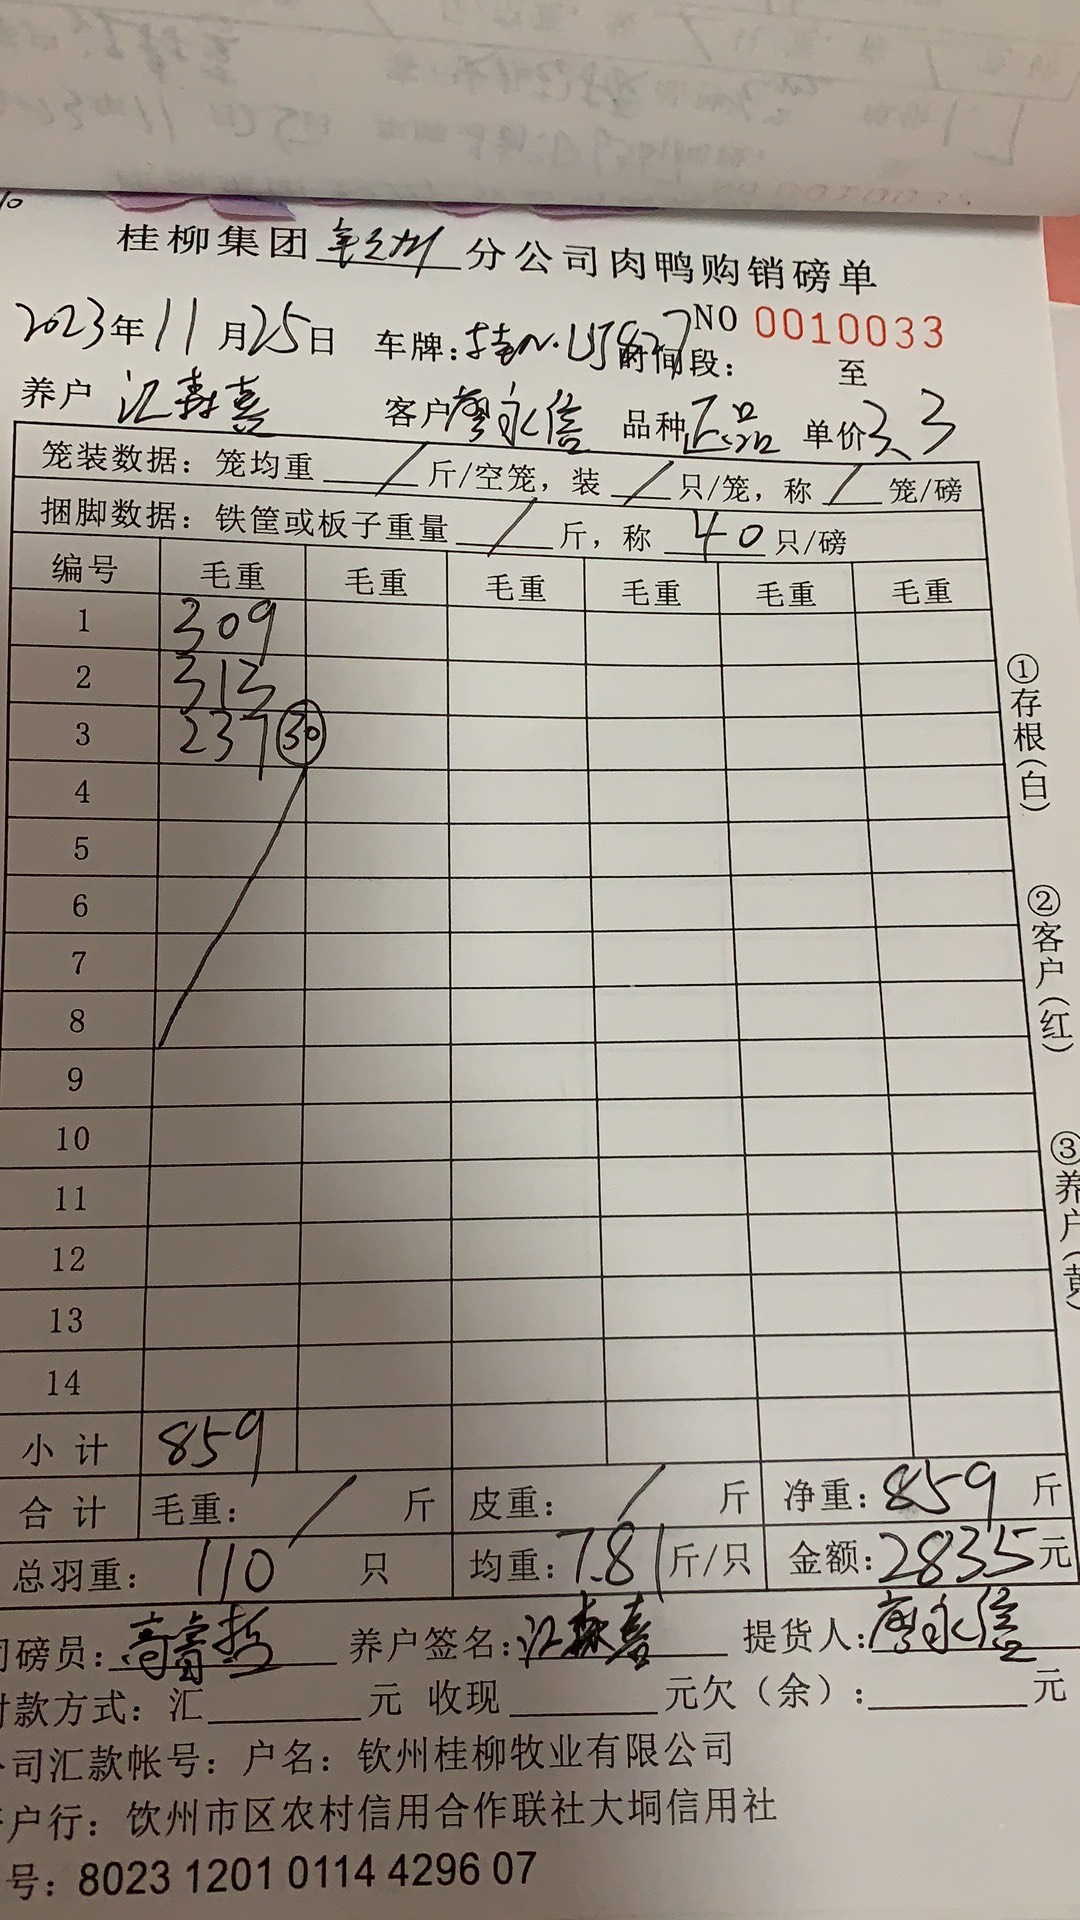 桂柳集团钦州分公司肉鸭购销磅单
NO 0010033
2023年11月25日 车牌:桂N·U5827 时间段: 至
养户 汇森喜 客户廖永信 品种正品 单价3.3
笼装数据:笼均重 / 斤/空笼,装 / 只/笼,称 / 笼/磅
捆脚数据:铁筐或板子重量 / 斤,称 40 只/磅
编号 毛重 毛重 毛重 毛重 毛重 毛重
1 309
2 313
3 237 ㉚
4
5
6
7
8
9
10
11
12
13
14
小计 859
合计 毛重: / 斤 皮重: / 斤 净重:859 斤
总羽重: 110 只 均重:7.81斤/只 金额:2835元
磅员: 养户签名:汇森喜 提货人:廖永信
款方式:汇 元 收现 元欠(余): 元
司汇款帐号:户名:钦州桂柳牧业有限公司
户行:钦州市区农村信用合作联社大垌信用社
号:8023 1201 0114 4296 07
①存根(白)
②客户(红)
③养户(黄)